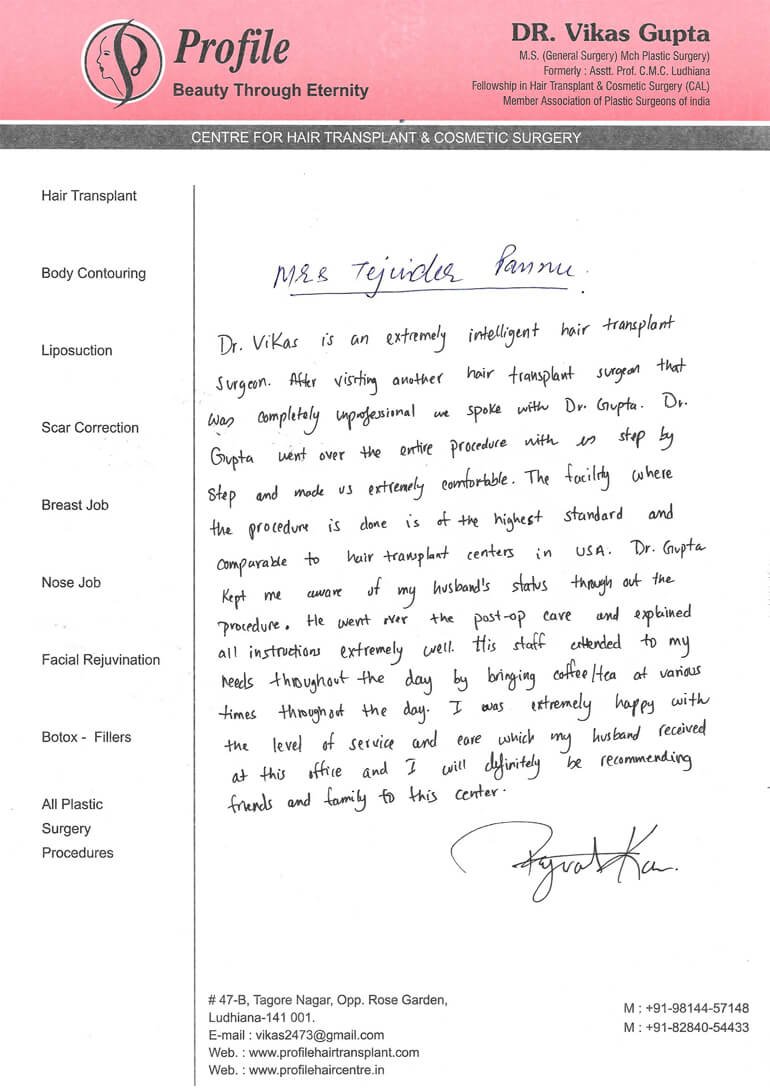 Profile
Beauty Through Eternity
DR. Vikas Gupta
M.S. (General Surgery) Mch Plastic Surgery)
Formerly : Asstt. Prof. C.M.C. Ludhiana
Fellowship in Hair Transplant & Cosmetic Surgery (CAL)
Member Association of Plastic Surgeons of india
CENTRE FOR HAIR TRANSPLANT & COSMETIC SURGERY
Hair Transplant
Body Contouring
Liposuction
Scar Correction
Breast Job
Nose Job
Facial Rejuvination
Botox - Fillers
All Plastic
Surgery
Procedures
MRS Tejinder Pannu.
Dr. Vikas is an extremely intelligent hair transplant
surgeon. After visiting another hair transplant surgeon that
was completely unprofessional we spoke with Dr. Gupta. Dr.
Gupta went over the entire procedure with us step by
step and made us extremely comfortable. The facility where
the procedure is done is of the highest standard and
comparable to hair transplant centers in USA. Dr. Gupta
kept me aware of my husband's status through out the
procedure. He went over the post-op care and explained
all instructions extremely well. His staff extended to my
needs throughout the day by bringing coffee/tea at various
times throughout the day. I was extremely happy with
the level of service and care which my husband received
at this office and I will definitely be recommending
friends and family to this center.
# 47-B, Tagore Nagar, Opp. Rose Garden,
Ludhiana-141 001.
E-mail : vikas2473@gmail.com
Web. : www.profilehairtransplant.com
Web. : www.profilehaircentre.in
M : +91-98144-57148
M : +91-82840-54433